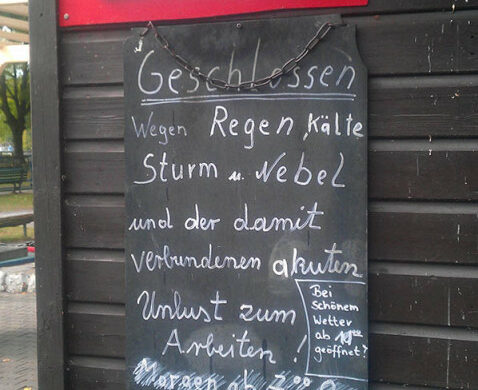 Geschlossen
Wegen Regen, Kälte
Sturm u. Nebel
und der damit
verbundenen akuten
Unlust zum
Arbeiten!
Bei
schönem
Wetter
ab
geöffnet?
Morgen ab